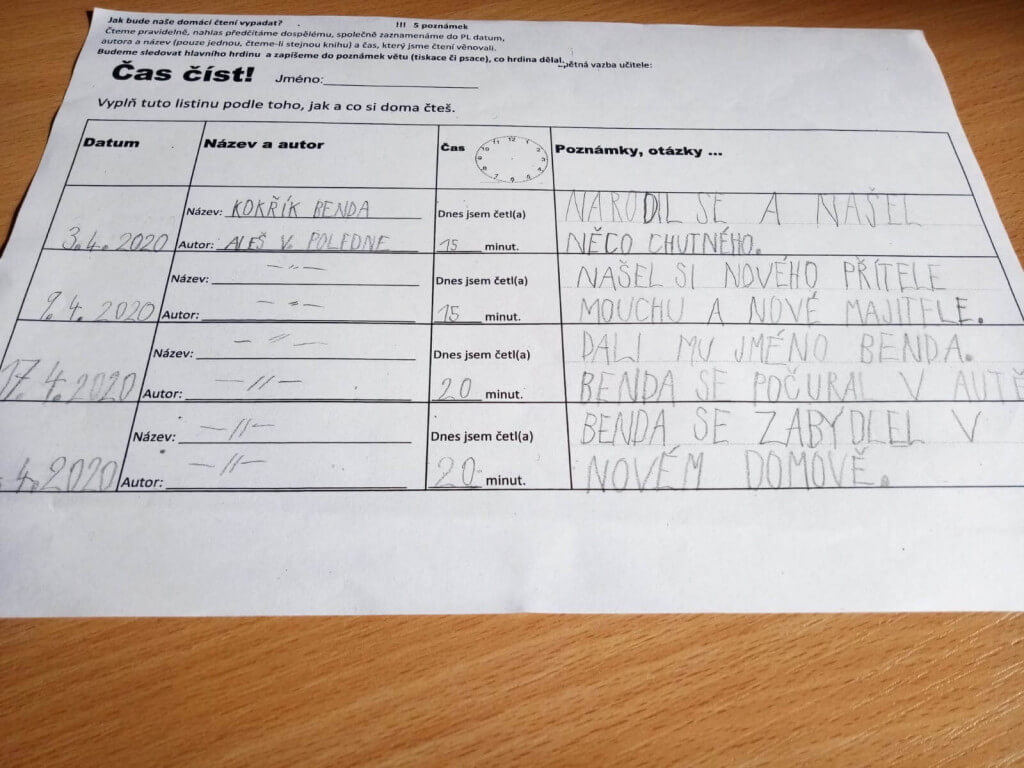 Jak bude naše domácí čtení vypadat? HI 5 poznámek
Čteme pravidelně, nahlas předčítáme dospělému, společně zaznamenáme do PL datum,
autora a název (pouze jednou, čteme-li stejnou knihu) a čas, který jsme čtení věnovali.
Budeme sledovat hlavního hrdinu a zapíšeme do poznámek větu (tiskace či psace), co hrdina dělal.
zpětná vazba učitele:
Čas číst! Jméno:
Vyplň tuto listinu podle toho, jak a co si doma čteš.
Datum Název a autor Čas Poznámky, otázky ...
Název: KOKŘÍK BENDA Dnes jsem četl(a) NARODIL SE A NAŠEL
3.4. 2020 Autor: ALEŠ V. POLEDNE 15 minut. NĚCO CHUTNÉHO.
Název: —"— Dnes jsem četl(a) NAŠEL SI NOVÉHO PŘÍTELE
9.4. 2020 Autor: —"— 15 minut. MOUCHU A NOVÉ MAJITELE.
Název: —"— Dnes jsem četl(a) DALI MU JMÉNO BENDA.
17.4.2020 Autor: —//— 20 minut. BENDA SE POČURAL V AUTĚ
Název: —//— Dnes jsem četl(a) BENDA SE ZABYDLEL V
4.2020 Autor: —//— 20 minut. NOVÉM DOMOVĚ.